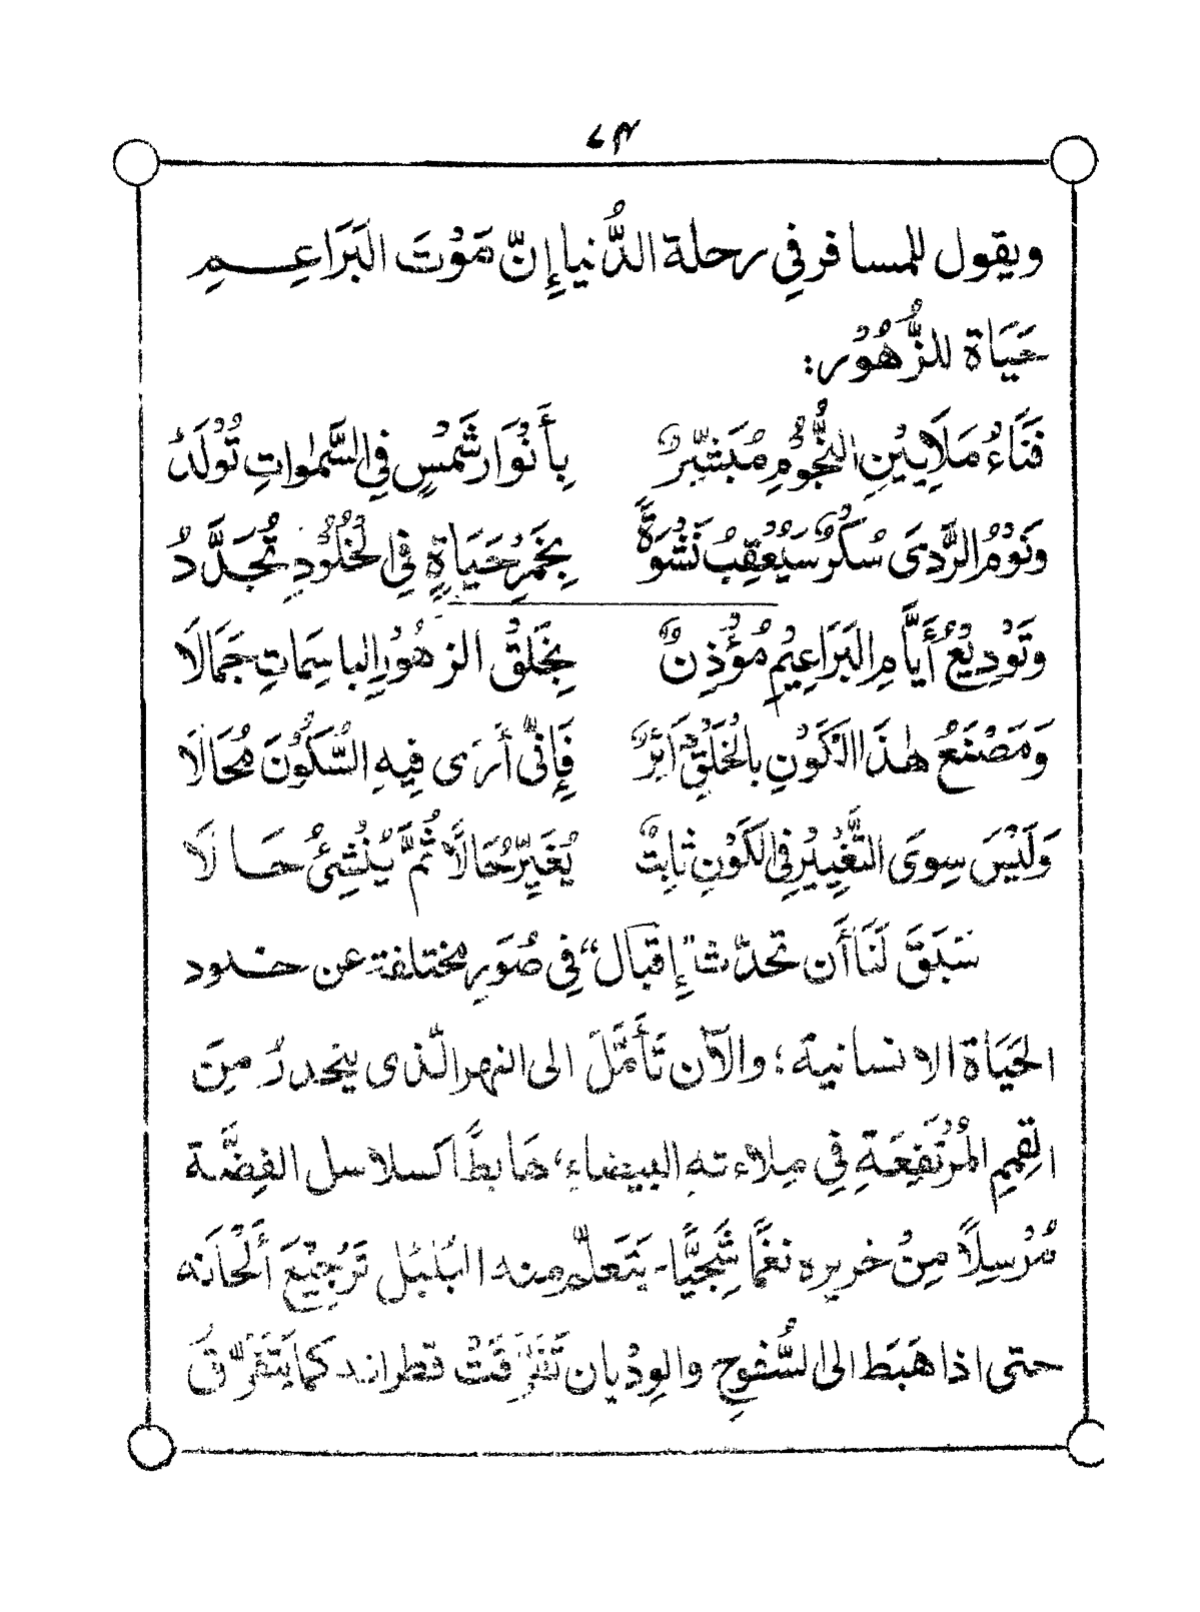 ويقول للمسافر في رحلة الدُّنيا إِنّ مَوْتَ البَرَاعِمِ
حَيَاة للزُّهُوْر:
فَنَاءُ مَلَايِيْنِ النُّجُوْمِ مُبَشِّرٌ بِأَنْوَارِ شَمْسٍ فِي السَّمٰواتِ تُوْلَدُ
وَنَوْمُ الرَّدىَ سُكْرٌ سَيُعْقِبُ نَشْوَةً بِخَمْرِ حَيَاةٍ فِي الخُلُوْدِ تُجَدَّدُ
وَتَوْدِيْعُ أَيَّامِ البَرَاعِيْمِ مُؤْذِنٌ بِخَلْقِ الزهُوْرِ الباسِمَاتِ جَمَالَا
وَمَصْنَعُ هٰذَا الْكَوْنِ بالخَلْقِ أَثِرٌ فَإِنّى أَرَى فِيهِ السُّكُوْنَ مُحَالَا
وَلَيْسَ سِوىَ التَّغْيِيْرِ فِي الكَوْنِ ثابِتٌ يُغَيِّرُ حَالًا ثُمَّ يُنْشِئُ حَالَا
سَبَقَ لَنَا أَن تحدّث "إِقبَال" فِي صُوَرٍ مختلفة عن خلود
الحَيَاة الانسانية؛ والآن تَأَمَّلَ الى النهر الّذى ينحدرُ مِنَ
القِمِمِ المُرْتَفِعَةِ فِي ملاءته البيضاءِ، هَابطًا كسلاسل الفِضَّة
مُرْسِلاً مِنْ خريره نغمًا شَجِيًّا- يَتَعَلّم منه البُلبُل تَرْجِيْعَ أَلْحَانه
حتى اذا هَبَط الى السُّفوحِ والوِدْيان تَفَرَّقَتْ قطراته كما يَتَفَرَّقُ